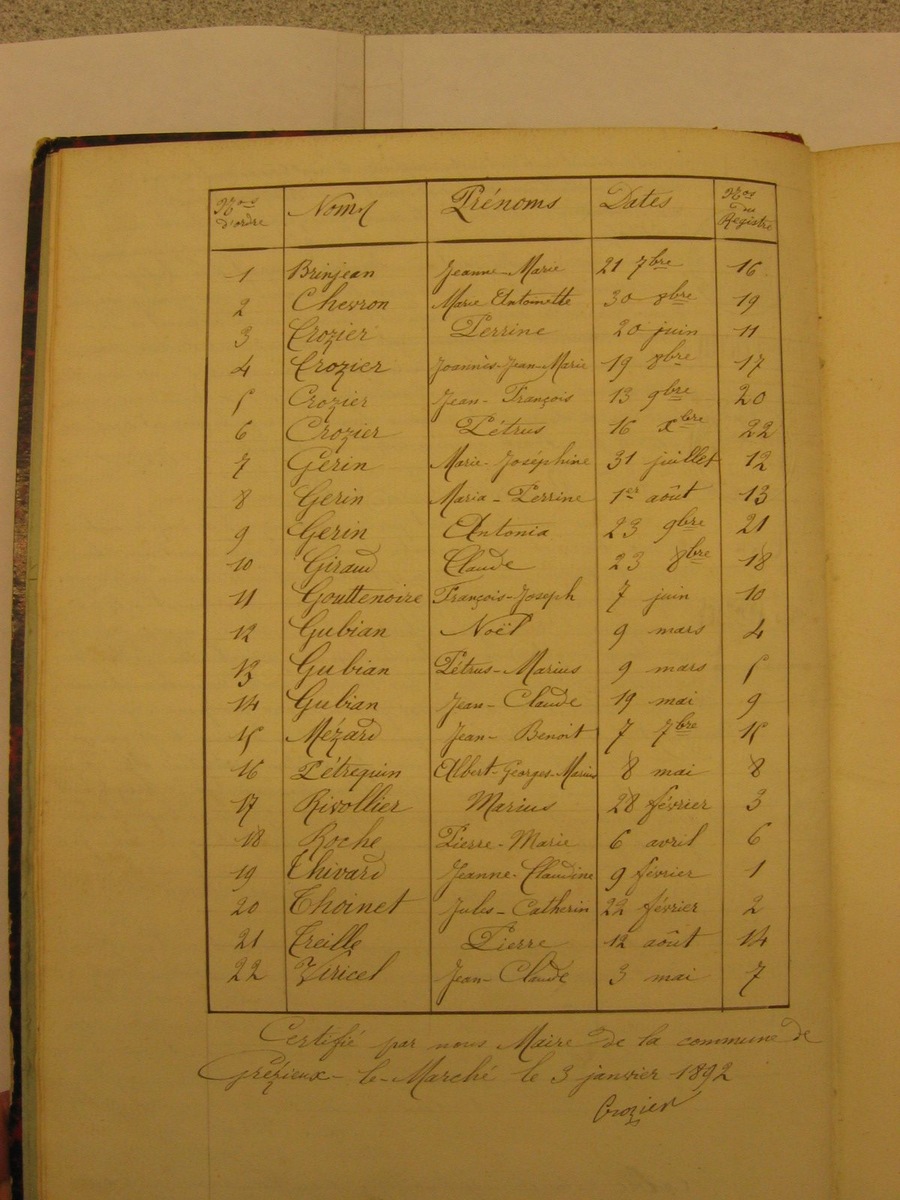 Nos d'ordre Noms Prénoms Dates Nos du Registre
1 Brinjean Jeanne-Marie 21 7bre 16
2 Chevron Marie Antoinette 30 8bre 19
3 Crozier Perrine 20 juin 11
4 Crozier Joannès-Jean-Marie 19 8bre 17
5 Crozier Jean-François 13 9bre 20
6 Crozier Pétrus 16 Xbre 22
7 Gerin Marie-Joséphine 31 juillet 12
8 Gerin Maria-Perrine 1er août 13
9 Gerin Antonia 23 9bre 21
10 Giraud Claude 23 8bre 18
11 Gouttenoire François-Joseph 7 juin 10
12 Gubian Noël 9 mars 4
13 Gubian Pétrus-Marius 9 mars 5
14 Gubian Jean-Claude 19 mai 9
15 Mézard Jean-Benoit 7 7bre 15
16 Pétrequin Albert-Georges-Marius 8 mai 8
17 Rivollier Marius 28 février 3
18 Roche Pierre-Marie 6 avril 6
19 Thivard Jeanne-Claudine 9 février 1
20 Thoinet Jules-Catherin 22 février 2
21 Treille Pierre 12 août 14
22 Viricel Jean-Claude 3 mai 7
Certifié par nous Maire de la commune de
Grézieux-le-Marché le 3 janvier 1892
Crozier